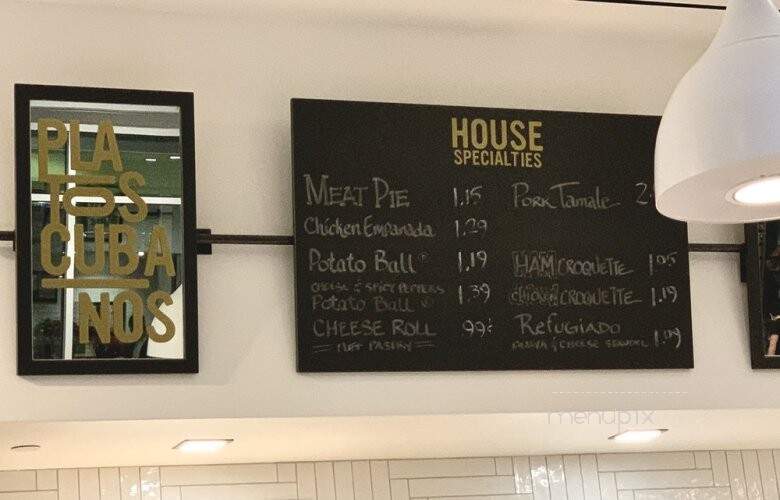 PLA
TOS
CUBA
NOS
HOUSE
SPECIALTIES
MEAT PIE 1.15
Chicken Empanada 1.29
Potato Ball 1.19
CHEESE & SPICY PEPPERS
Potato Ball 1.39
CHEESE ROLL .99¢
PUFF PASTRY
PORK Tamale 2.
HAM CROQUETTE 1.05
CHICKEN CROQUETTE 1.19
Refugiado
GUAVA & CHEESE STRUDEL 1.09
menupix